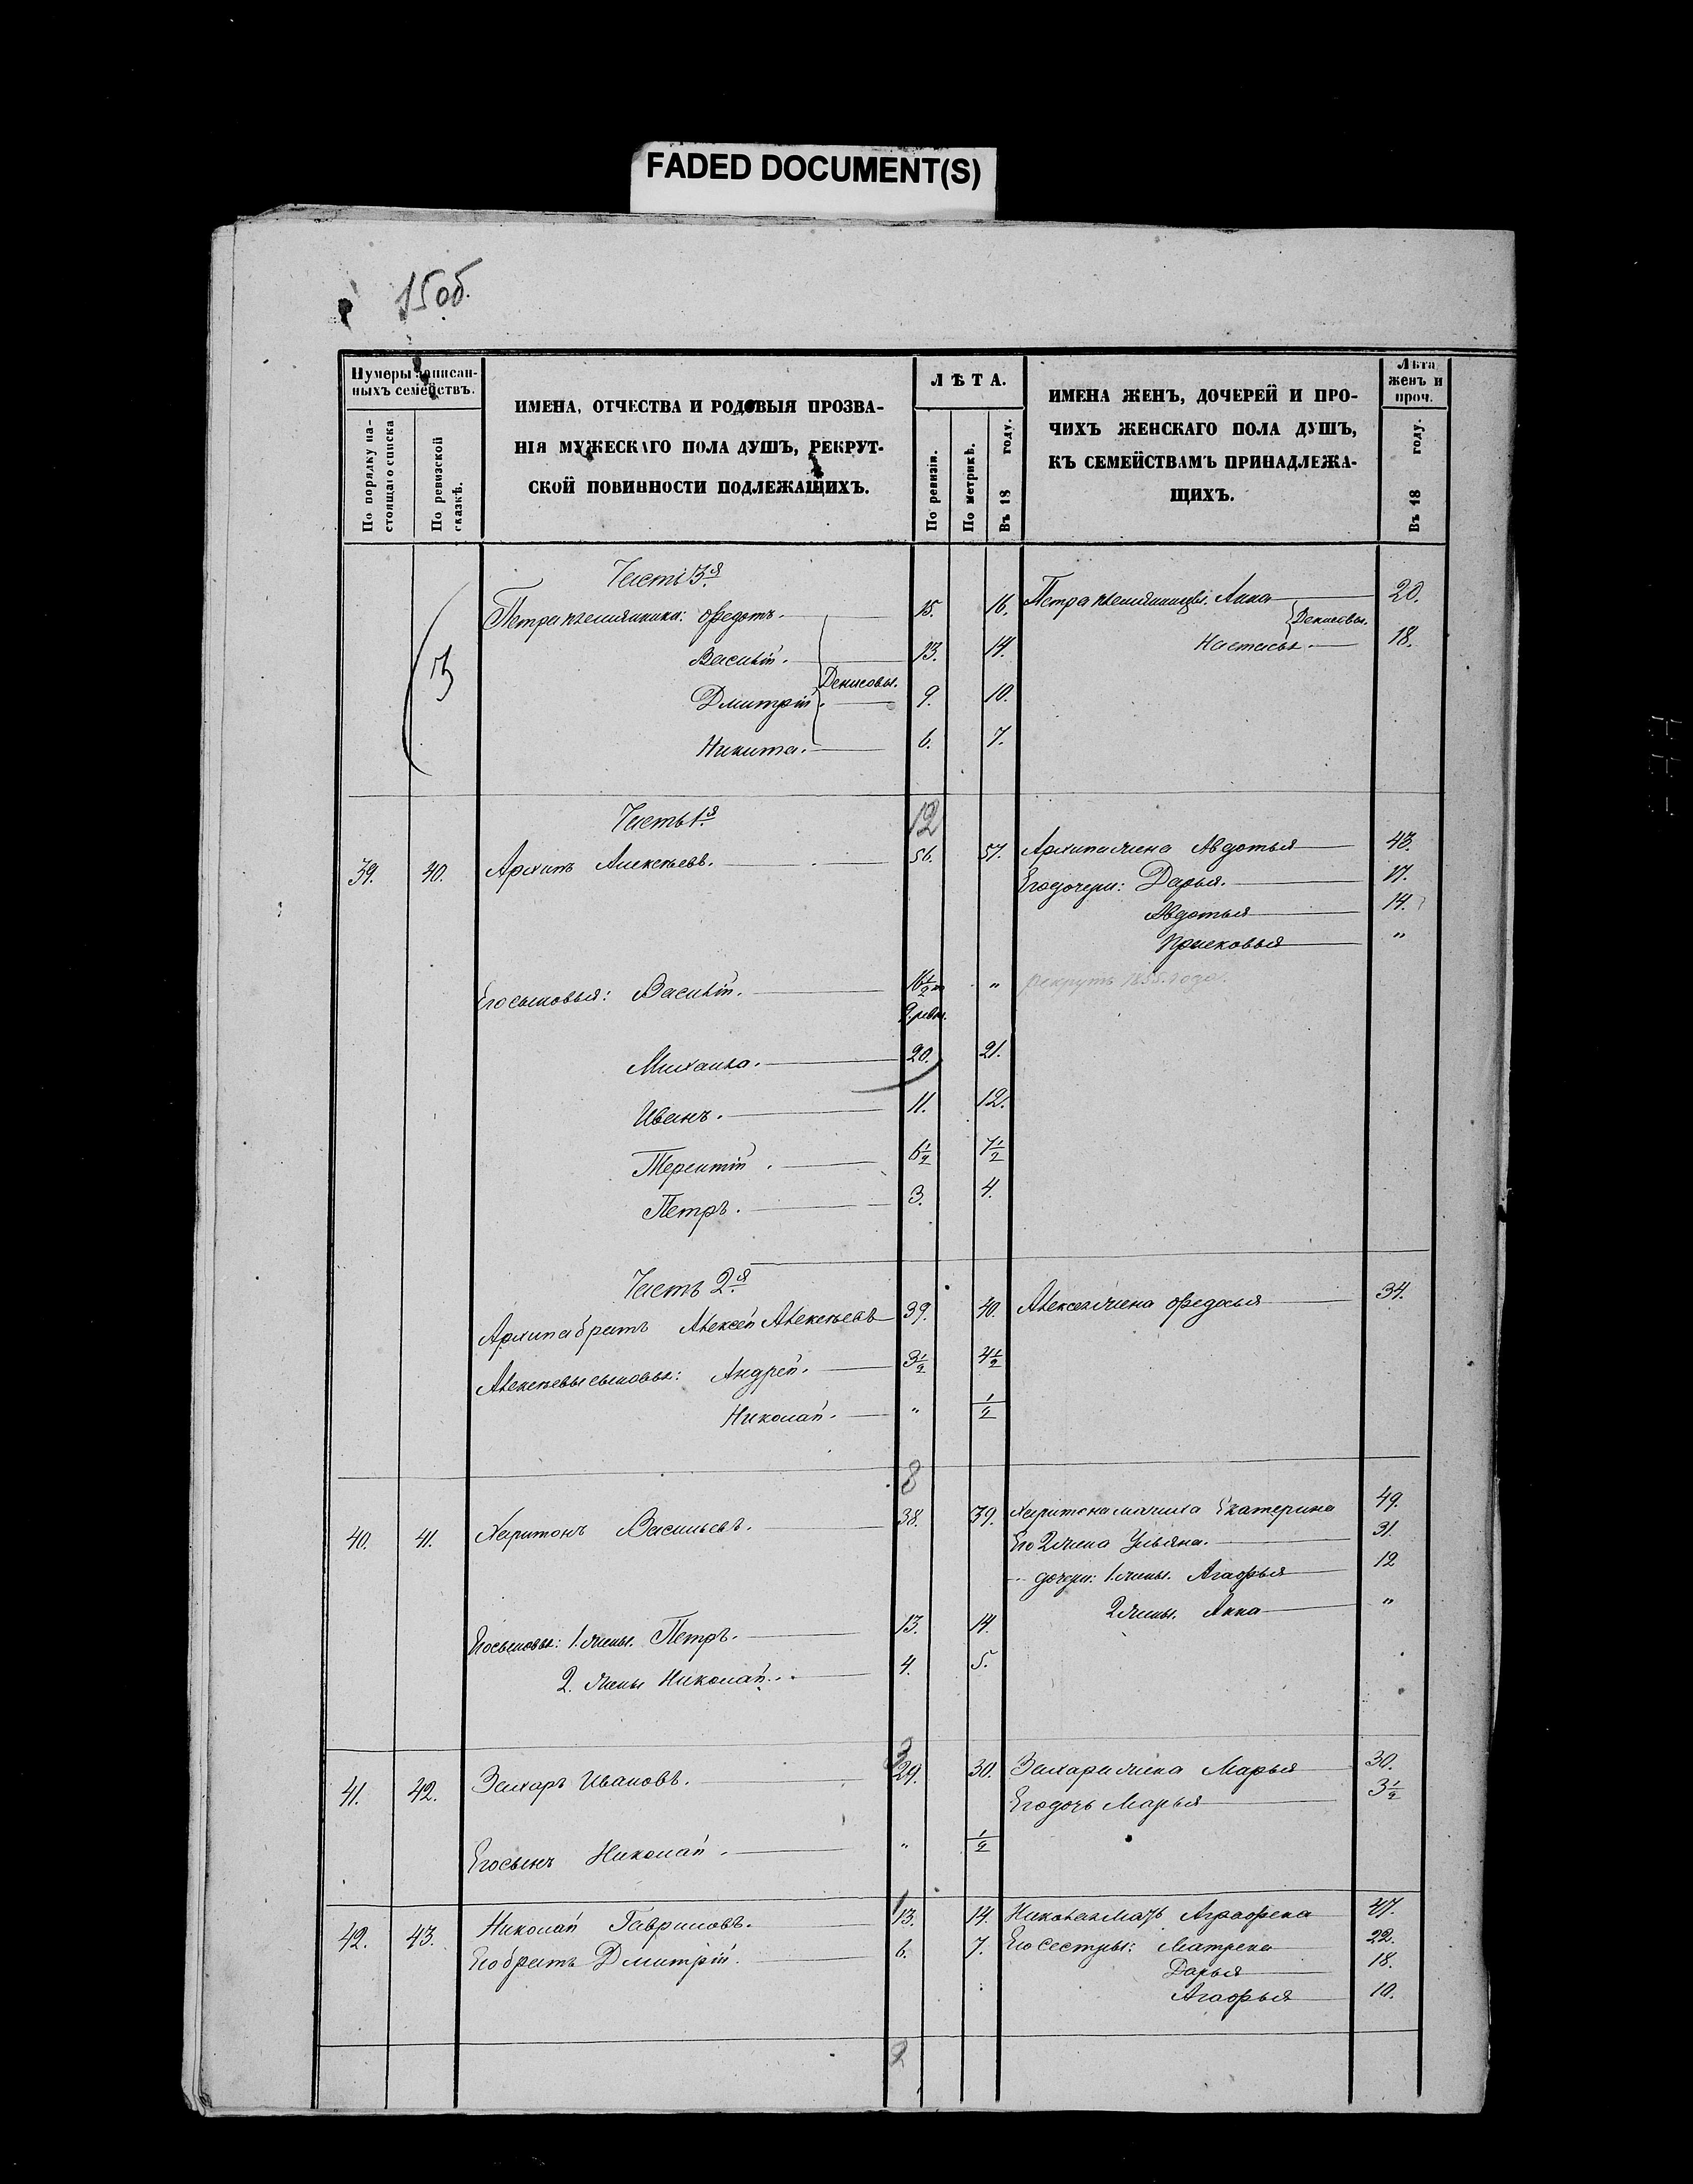 FADED DOCUMENT(S)
15 об.
Нумеры записан-
ныхъ семействъ.
По порядку на-
стоящаго списка
По ревизской
сказкѣ.
ИМЕНА, ОТЧЕСТВА И РОДОВЫЯ ПРОЗВА-
НІЯ МУЖЕСКАГО ПОЛА ДУШЪ, РЕКРУТ-
СКОЙ ПОВИННОСТИ ПОДЛЕЖАЩИХЪ.
ЛѢТА.
По ревизіи.
По метрикѣ.
Въ 18 году.
ИМЕНА ЖЕНЪ, ДОЧЕРЕЙ И ПРО-
ЧИХЪ ЖЕНСКАГО ПОЛА ДУШЪ,
КЪ СЕМЕЙСТВАМЪ ПРИНАДЛЕЖА-
ЩИХЪ.
Лѣта
женъ и
проч.
Въ 18 году.
Часть 3я
Петра племянники: Ѳедотъ. 15. 16. Петра племянницы: Анна 20.
Денисовы.
Василій. 13. 14. Настасья. 18.
Денисовы.
Дмитрій. 9. 10.
Никита. 6. 7.
Часть 1я 12
39. 40. Архипъ Алексѣевъ. 56. 57. Архипа жена Авдотья 43.
Его дочери: Дарья. 17.
Авдотья 14.
Прасковья "
Его сыновья: Василій. 16½ " рекрутъ 1855. года.
Михаила. 20. 21.
Иванъ. 11. 12.
Терентій. 6½ 7½
Петръ. 3. 4.
Часть 2я
Архипа братъ Алексѣй Алексѣевъ 39. 40. Алексѣя жена Ѳедосья 34.
Алексѣевы сыновья: Андрей. 3½ 4½
Николай. " ½
8
40. 41. Харитонъ Васильевъ. 38. 39. Харитона мачиха Екатерина 49.
Его 2 жена Ульяна. 31.
дочери: 1. жены. Агафья 12
2 жены. Анна "
Его сыновья: 1. жены. Петръ. 13. 14.
2. жены Николай. 4. 5.
3
41. 42. Захаръ Ивановъ. 29. 30. Захара жена Марья 30.
Его дочь Марья 3½
Его сынъ Николай. " ½
42. 43. Николай Гавриловъ. 13. 14. Николая мать Аграфена 47.
Его братъ Дмитрій. 6. 7. Его сестры: Матрена 22.
Дарья 18.
Агафья 10.
2